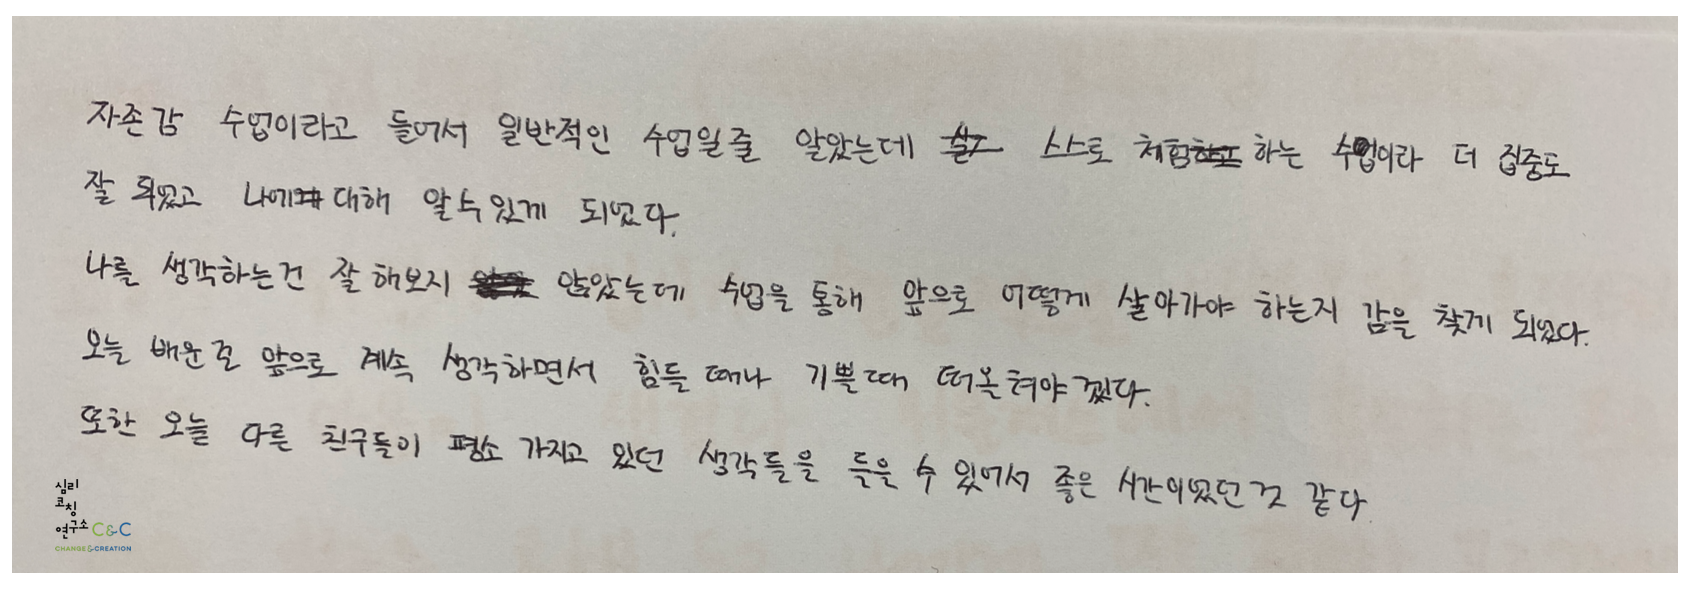 자존감 수업이라고 들어서 일반적인 수업일줄 알았는데 스스로 체험하는 수업이라 더 집중도
잘 되었고 나에 대해 알 수 있게 되었다.
나를 생각하는건 잘 해보지 않았는데 수업을 통해 앞으로 어떻게 살아가야 하는지 감을 찾게 되었다.
오늘 배운 걸 앞으로 계속 생각하면서 힘들 때나 기쁠때 떠올려야겠다.
또한 오늘 다른 친구들이 평소 가지고 있던 생각들을 들을 수 있어서 좋은 시간이었던 것 같다
심리
코칭
연구소 C&C
CHANGE&CREATION